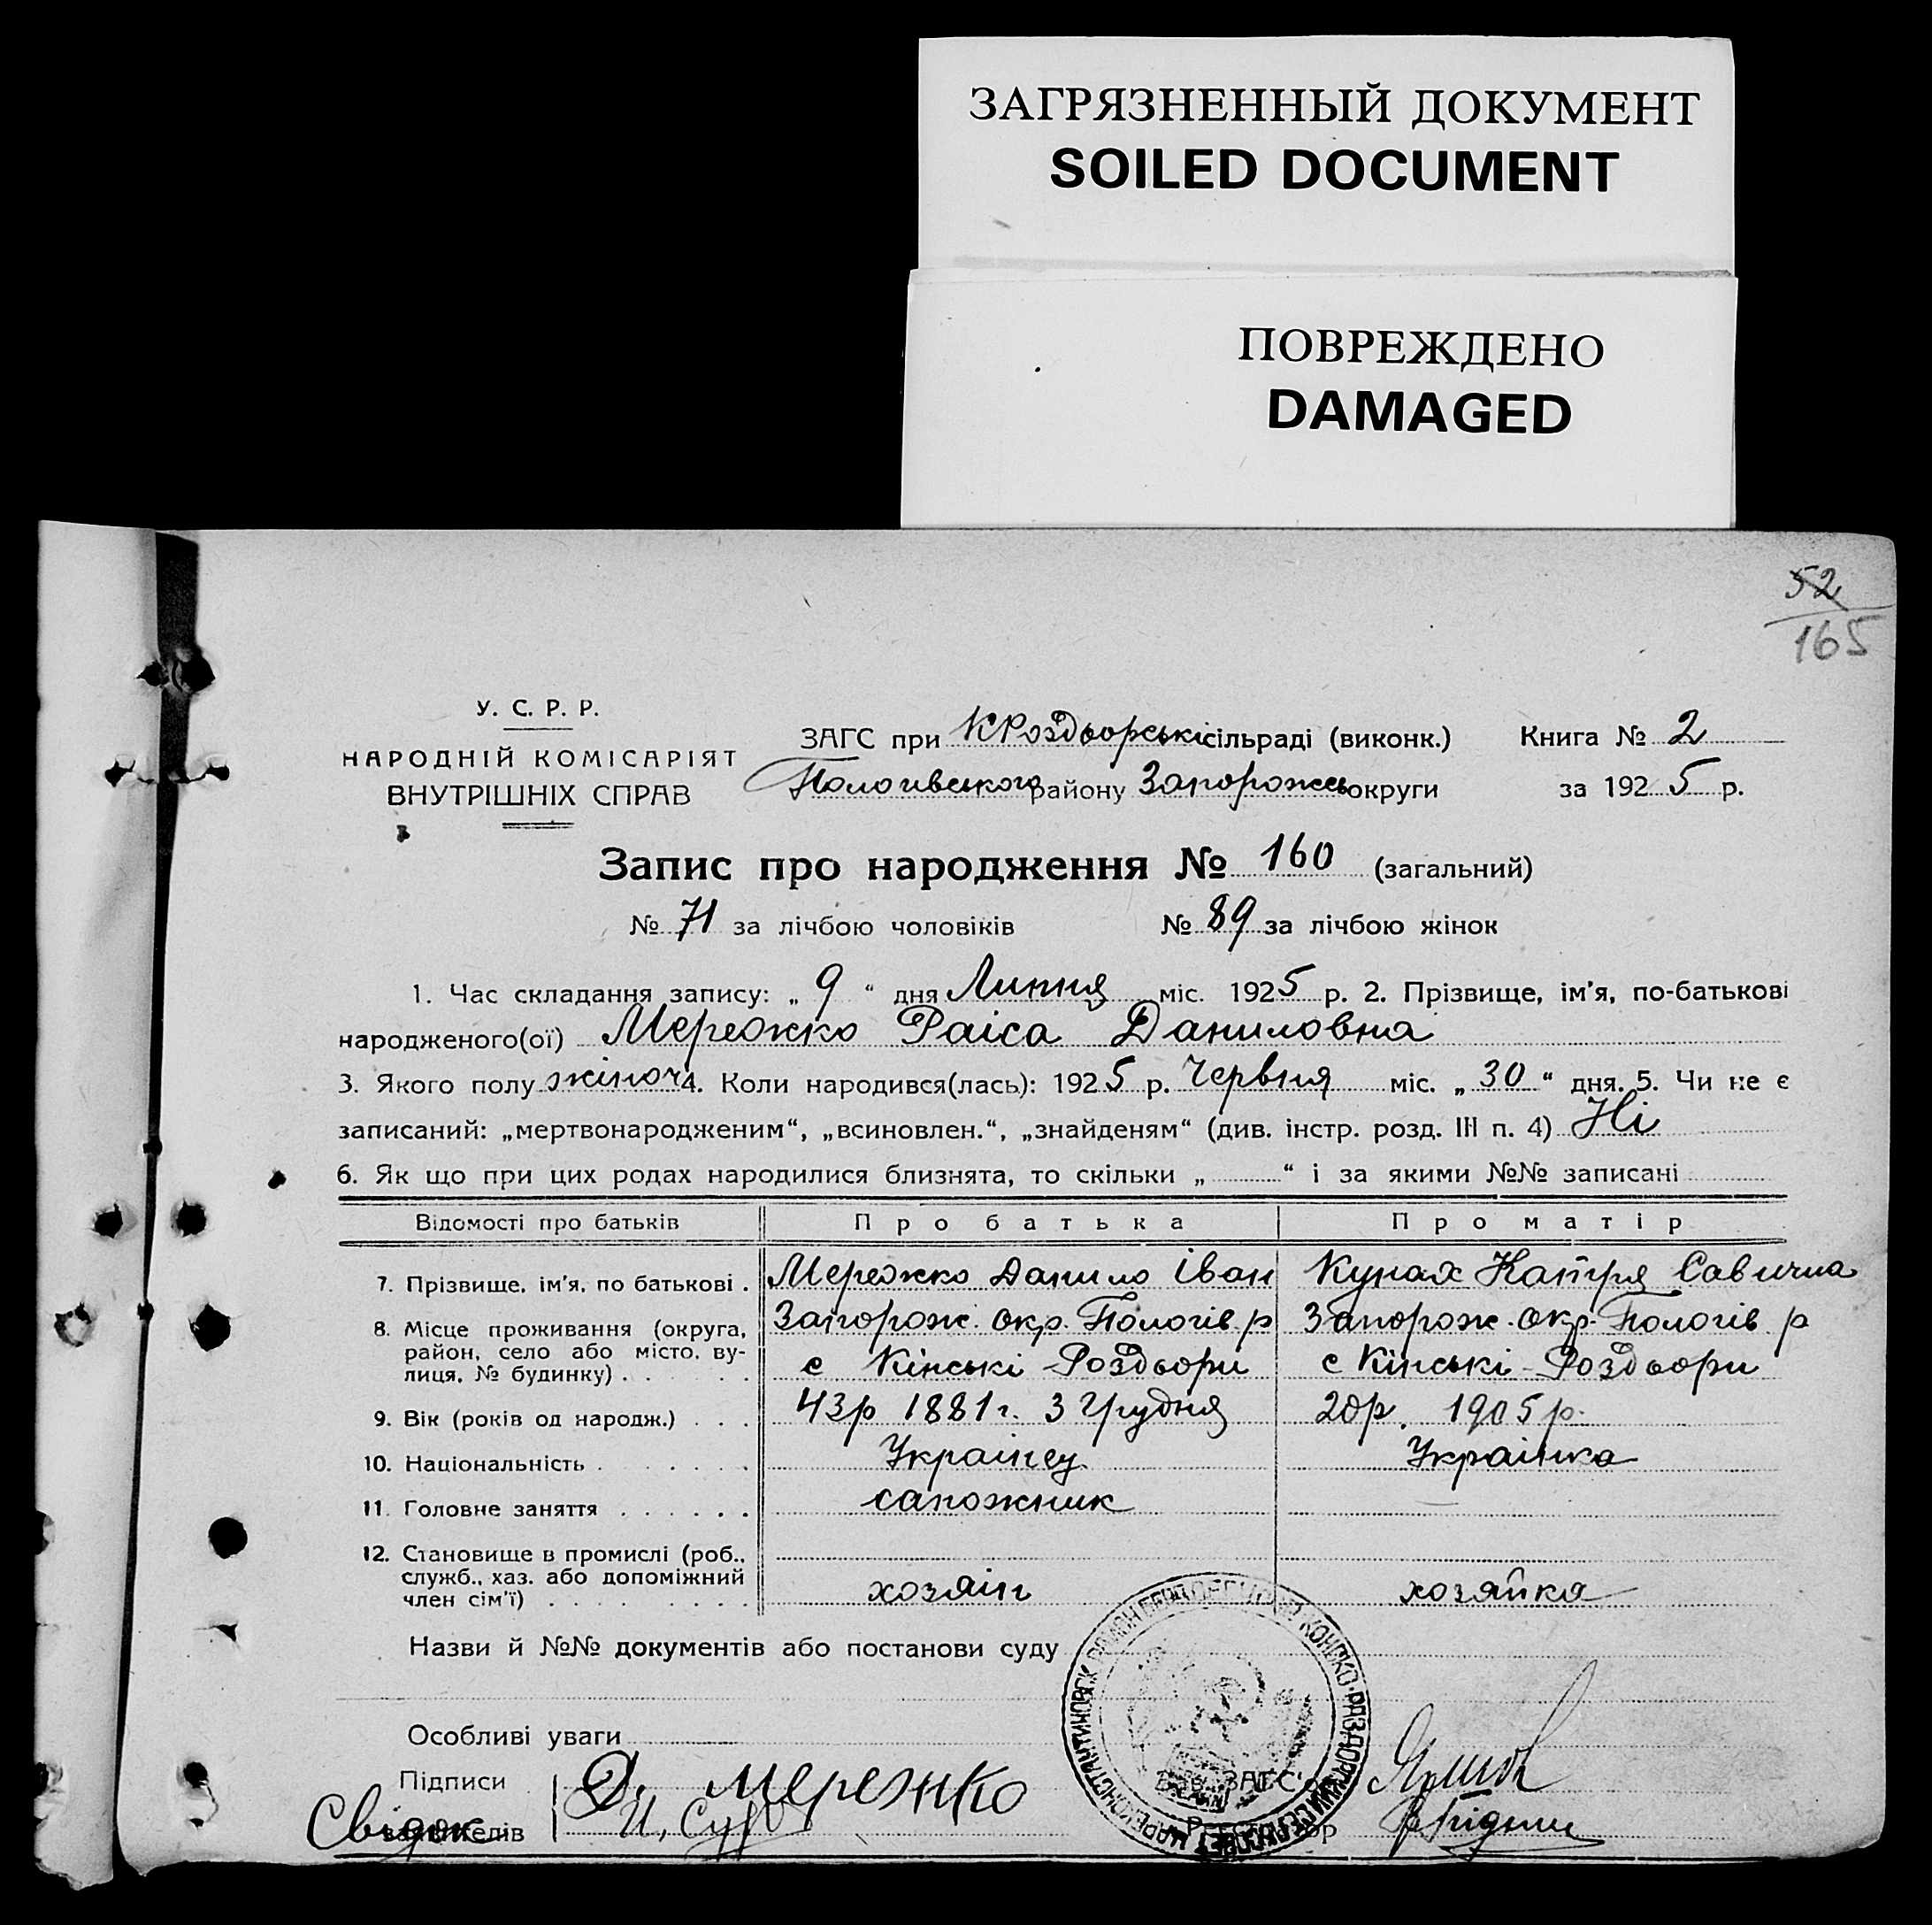 ЗАГРЯЗНЕННЫЙ ДОКУМЕНТ
SOILED DOCUMENT
ПОВРЕЖДЕНО
DAMAGED
52
165
У. С. Р. Р.
НАРОДНІЙ КОМІСАРІЯТ
ВНУТРІШНІХ СПРАВ
ЗАГС при КРоздворські сільраді (виконк.) Книга № 2
Пологівського району Запорожсь округи за 1925 р.
Запис про народження № 160 (загальний)
№ 71 за лічбою чоловіків № 89 за лічбою жінок
1. Час складання запису: „ 9 “ дня Липня міс. 1925 р. 2. Прізвище, ім'я, по-батькові
народженого(ої) Мережко Раіса Даниловна
3. Якого полу жіноч 4. Коли народився(лась): 1925 р. Червня міс. „ 30 “ дня. 5. Чи не є
записаний: „мертвонародженим“, „всиновлен.“, „знайденям“ (див. інстр. розд. III п. 4) Ні
6. Як що при цих родах народилися близнята, то скільки „ “ і за якими №№ записані
Відомості про батьків Про батька Про матір
7. Прізвище, ім'я, по батькові . Мережко Данило Іван Кунах Катря Савична
8. Місце проживання (округа, Запорож. окр. Пологів р Запорож. окр. Пологів р
район, село або місто, ву-
лиця, № будинку) . с Кінські-Роздвори с Кінські-Роздвори
9. Вік (років од народж.) . . . 43р 1881 г. 3 Грудня 20р. 1905 р.
10. Національність . Украінец Украінка
11. Головне заняття . сапожник
12. Становище в промислі (роб.,
служб., хаз. або допоміжний
член сім'ї) . хозяін хозяйка
Назви й №№ документів або постанови суду
Особливі уваги
Підписи Д. Мережко Зав. ЗАГС'ом
Свідок заявителів И. Реєстратор
КОНСКО-РАЗДОРСКИЙ СЕЛЬСОВЕТ ЦАРЕКОНСТАНТИНОВСК. РАЙОН